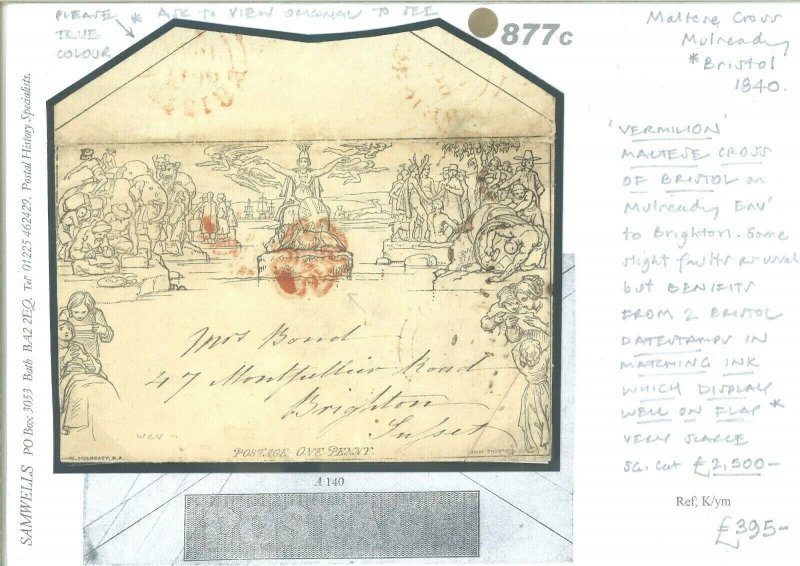 PLEASE * ASK TO VIEW ORIGINAL TO SEE
TRUE
COLOUR
877c
Maltese Cross
Mulready
*Bristol
1840.
'VERMILION'
MALTESE CROSS
OF BRISTOL on
Mulready Env'
to Brighton. Some
slight faults as usual
but BENIFITS
FROM 2 BRISTOL
DATESTAMPS IN
MATCHING INK
WHICH DISPLAY
WELL ON FLAP *
VERY SCARCE
SG. Cat £2,500-
Ref, K/ym
£395-
SAMWELLS PO Box 3053 Bath BA2 2EQ. Tel' 01225 462429. Postal History Specialists.
Mrs Bond
47 Montpellier Road
Brighton
Sussex
POSTAGE ONE PENNY.
W. MULREADY, R.A.
A 140
POSTAGE